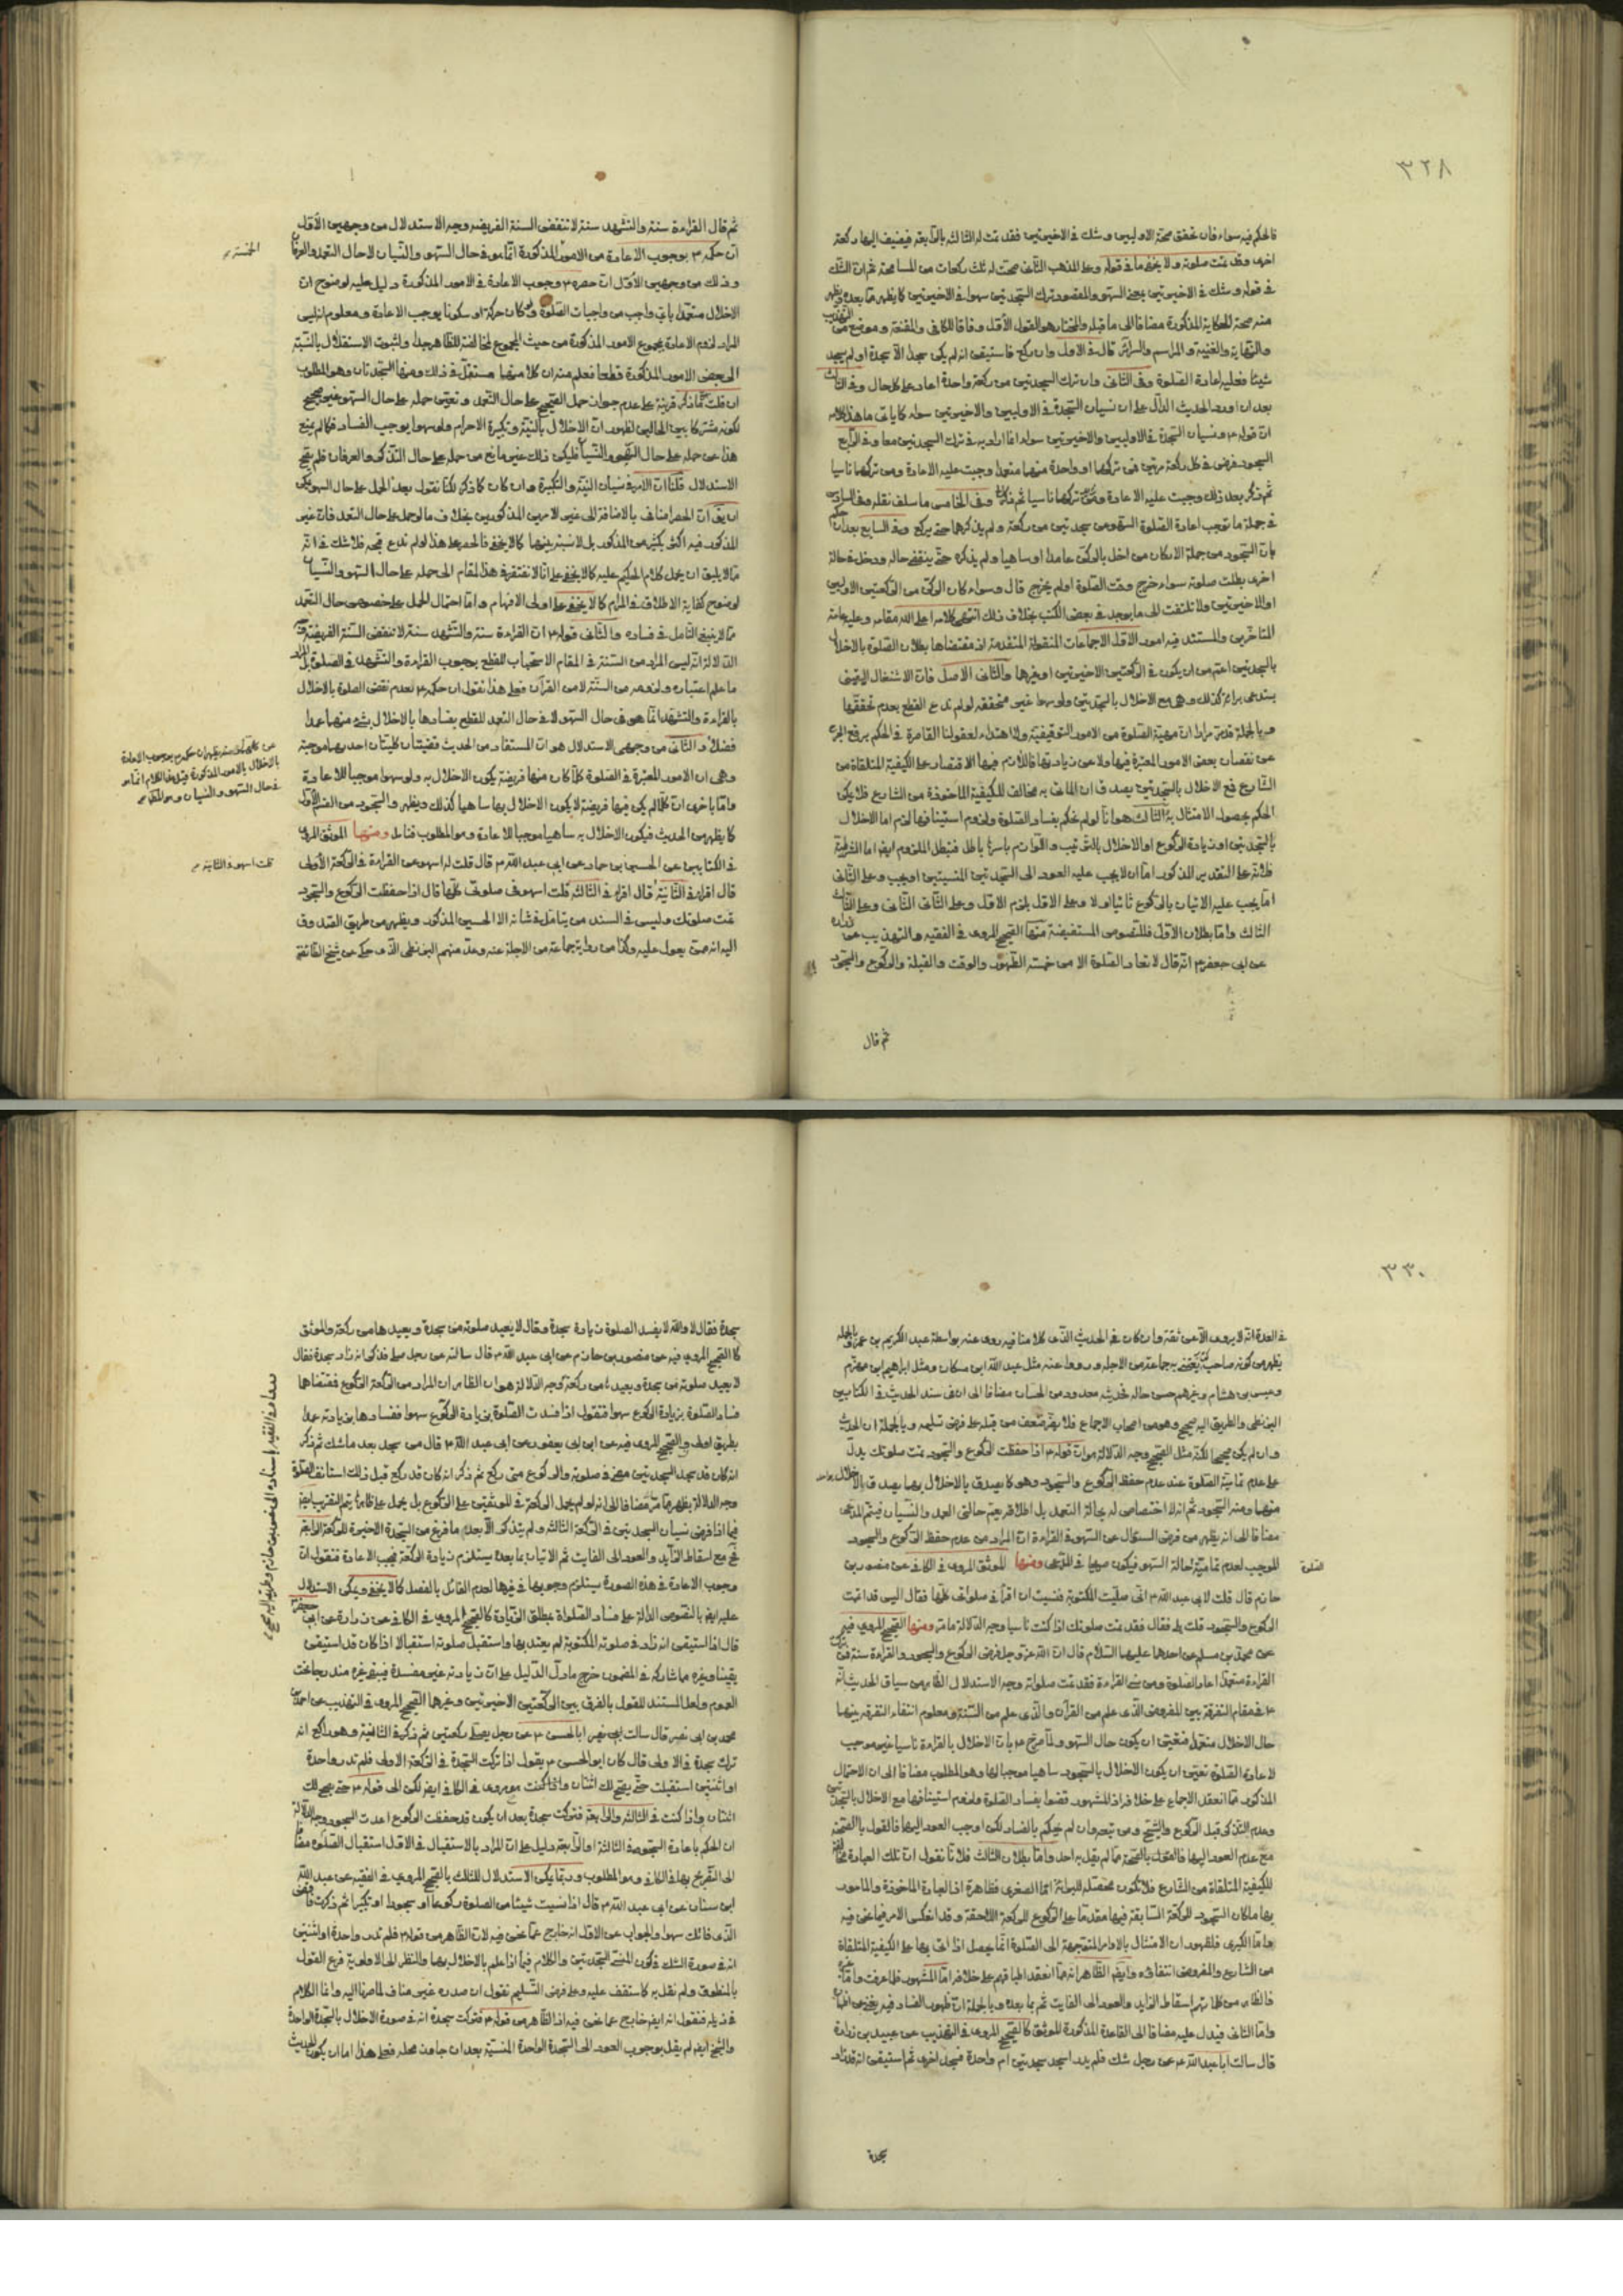 ٣٢٨
فالحكم فيه سواء فان تحقق صحة الاوليين وشك في الاخيرتين فقد تمت له الثالثة بالرابعة فيضيف اليها ركعة
اخرى وقد تمت صلوته ولا يخفى ما في قوله وعلى المذهب الثاني صحت له ثلث ركعات من المسامحة ثم ان الشك
في قوله وشك في الاخيرتين بمعنى السهو والمقصود ترك السجدتين سهوا في الاخيرتين كما يظهر مما بعده ويظهر
منه صحة الحكاية المذكورة مضافا الى ما قبله والمختار هو القول الأول وفاقا للكافي والمقنعة وموضع من التهذيب
والنهاية والغنية والمراسم والسرائر قال في الاول وان ركع فاستيقن انه لم يكن سجد الا سجدة او لم يسجد
شيئا فعليه اعادة الصلوة وفي الثاني وان ترك السجدتين من ركعة واحدة اعاد على كل حال وفي الثالث
بعد ان اورد الحديث الدال على ان نسيان السجدة في الاوليين والاخيرتين سواء كما ياتي ما هذا كلامه
ان قوله ونسيان السجدة في الاوليين والاخيرتين سواء اذا اراد به في ترك السجدتين معا وفي الرابع
السجود فرض في كل ركعة مرتين فمن تركهما او واحدة منهما متعمدا وجبت عليه الاعادة ومن تركهما ناسيا
ثم ذكر بعد ذلك وجبت عليه الاعادة ومتى تركها ناسيا ثم ذكر وفي الخامس ما سلف نقله وفي السادس
في جملة ما توجب اعادة الصلوة السهو من سجدتين من ركعة ولم يذكرهما حتى يركع وفي السابع بعد ان حكم
بان السجود من جملة الاركان من اخل بالركن عامدا او ساهيا ولم يذكره حتى ينقضي حاله ودخل في حالة
اخرى بطلت صلوته سواء خرج وقت الصلوة او لم يخرج قال وسواء كان الركن من الركعتين الاوليين
او الاخيرتين ولا تلتفت الى ما يوجد في بعض الكتب بخلاف ذلك انتهى كلامه اعلى الله مقامه وعليه عامة
المتاخرين والمستند فيه امور الاول الاجماعات المنقولة المتقدمة اذ مقتضاها بطلان الصلوة بالاخلال
بالسجدتين اعم من ان يكون في الركعتين الاخيرتين او غيرها والثاني الاصل فان الاشتغال اليقيني
يستدعي براءة كذلك وهي مع الاخلال بالسجدتين ولو سهوا غير متحققة لو لم ندع القطع بعدم تحققها
وبالجملة قد مر مرارا ان مهية الصلوة من الامور التوقيفية ولا اهتداء لعقولنا القاصرة في الحكم برفع الجزء
عن نقصان بعض الامور المعتبرة فيها ولا عن زيادتها فاللازم فيها الاقتصار على الكيفية المتلقاة من
الشارع فمع الاخلال بالسجدتين يصدق ان الماتي به مخالف للكيفية الماخوذة من الشارع فلا يمكن
الحكم بحصول الامتثال به الثالث هو انا لو لم نحكم بفساد الصلوة ولزوم استينافها لزم اما الاخلال
بالسجدتين او زيادة الركوع او الاخلال بالترتيب واللوازم باسرها باطل فبطل الملزوم ايضا اما الشرطية
فلانه على التقدير المذكور اما ان لا يجب عليه العود الى السجدتين المنسيتين او يجب وعلى الثاني
اما يجب عليه الاتيان بالركوع ثانيا او لا وعلى الاول يلزم الاول وعلى الثاني الثاني وعلى الثالث
الثالث واما بطلان الاول فللنصوص المستفيضة منها الصحيح المروي في الفقيه والتهذيب عن زرارة
عن ابي جعفر انه قال لا تعاد الصلوة الا من خمسة الطهور والوقت والقبلة والركوع والسجود
ثم قال
ثم قال القراءة سنة والتشهد سنة لا تنقض السنة الفريضة وجه الاستدلال من وجهين الأول
ان حكمه بوجوب الاعادة من الامور المذكورة انما هو في حال السهو والنسيان لا حال التعمد والعرفان
الخمسة
وذلك من وجهين الاول ان حصره وجوب الاعادة في الامور المذكورة دليل عليه لوضوح ان
الاخلال متعمدا باي واجب من واجبات الصلوة ولو كان حركة او سكونا يوجب الاعادة ومعلوم انه ليس
المراد لزوم الاعادة بمجموع الامور المذكورة من حيث المجموع لمخالفته للظاهر جدا ولثبوت الاستقلال بالنسبة
الى بعض الامور المذكورة قطعا فعلم منه ان كلا منها مستقل في ذلك ومنها السجدتان وهو المطلوب
ان قلت ما ذكر قرينة على عدم جواز حمل الصحيح على حال التعمد وتعين حمله على حال السهو غير صحيح
لكونه مشتركا بين الحالين لظهور ان الاخلال بالنية وتكبيرة الاحرام ولو سهوا يوجب الفساد فكما لم يمنع
هذا عن حمله على حال السهو والنسيان فليكن ذلك غير مانع من حمله على حال التذكر والعرفان فلم يتم
الاستدلال قلنا ان الامر في نسيان النية والتكبيرة وان كان كما ذكر لكنا نقول بعد الحمل على حال السهو يمكن
ان يقال ان الحصر اضافي بالاضافة الى غير الامرين المذكورين بخلاف ما لو حمل على حال التعمد فان غير
المذكور فيه اكثر بكثير من المذكور بل لا نسبة بينهما كما لا يخفى فالحصر على هذا لو لم ندع قبحه فلا شك في انه
مما لا يليق ان يحمل كلام الحكيم عليه كما لا يخفى على انا لا نفتقر في هذا المقام الى حمله على حال السهو والنسيان
لوضوح كفاية الاطلاق في المرام كما لا يخفى على اولى الافهام واما احتمال الحمل على خصوص حال التعمد
مما لا ينبغي التامل في فساده والثاني قوله ان القراءة سنة والتشهد سنة لا تنقض السنة الفريضة وجه
الدلالة انه ليس المراد من السنة في المقام الاستحباب للقطع بوجوب القراءة والتشهد في الصلوة بل المراد
ما علم اعتباره ولزومه من السنة لا من القرآن فعلى هذا نقول ان حكمه بعدم نقض الصلوة بالاخلال
بالقراءة والتشهد انما هو في حال السهو لا في حال التعمد للقطع بفسادها بالاخلال بشيء منهما عمدا
عن
بالاخلال بالامور المذكورة
في حال السهو والنسيان وهو المطلوب
فضلا والثاني من وجهي الاستدلال هو ان المستفاد من الحديث قضيتان كليتان احديهما موجبة
وهي ان الامور المعتبرة في الصلوة كلما كان منها فريضة يكون الاخلال به ولو سهوا موجبا للاعادة
واما باخرى ان كلما لم يكن فيها فريضة لا يكون الاخلال بها ساهيا كذلك ويظهر والسجود من القسم الأول
كما يظهر من الحديث فيكون الاخلال به ساهيا موجبا للاعادة وهو المطلوب فتامل ومنها الموثق المروي
في الكتابين عن الحسين بن حماد عن ابي عبد الله قال قلت له اسهو عن القراءة في الركعة الأولى
قلت اسهو في الثانية
قال اقرا في الثانية قال اقرا في الثالثة قلت اسهو في صلوتي كلها قال اذا حفظت الركوع والسجود
تمت صلوتك وليس في السند من يتامل في شانه الا الحسين المذكور ويظهر من طريق الصدوق
اليه انه ممن يعول عليه وكذا من رواية جماعة من الاجلة عنه وعد منهم البزنطي الذي حكى عن شيخ الطائفة
٣٣٠
في العدة انه لا يروي الا عن ثقة وان كان في الحديث الذي كلامنا فيه روى عنه بواسطة عبد الكريم بن عمرو وبالجملة
يظهر من كونه صاحب كتاب يعتنى به جماعة من الاجلة ورووا عنه مثل عبد الله بن مسكان ومثل ابراهيم بن مهزم
وعبيس بن هشام وغيرهم حسن حاله فحديثه معدود من الحسان مضافا الى ان في سند الحديث في الكتابين
البزنطي والطريق اليه صحيح وهو من اصحاب الاجماع فلا يضر ضعف من قبله على فرض تسليمه وبالجملة ان الحديث
وان لم يكن صحيحا لكنه مثل الصحيح وجه الدلالة هو ان قوله اذا حفظت الركوع والسجود تمت صلوتك يدل
على عدم تمامية الصلوة عند عدم حفظ الركوع والسجود وهو كما يصدق بالاخلال بهما يصدق بالاخلال بواحد
منهما ومنه السجود ثم انه لا اختصاص له بحالة التعمد بل اطلاقه يعم حالتي العمد والنسيان فيتم المدعى
مضافا الى انه يظهر من فرض السئوال عن السهو في القراءة ان المراد من عدم حفظ الركوع والسجود
الموجب لعدم تمامية حالة السهو فيكون صريحا في المدعى ومنها الموثق المروي في الكافي عن منصور بن
الصلوة
حازم قال قلت لابي عبد الله اني صليت المكتوبة فنسيت ان اقرأ في صلوتي كلها فقال اليس قد اتممت
الركوع والسجود قلت بلى فقال فقد تمت صلوتك اذا كنت ناسيا وجه الدلالة ما مر ومنها الصحيح المروي فيه
عن محمد بن مسلم عن احدهما عليهما السلام قال ان الله عز وجل فرض الركوع والسجود والقراءة سنة فمن ترك
القراءة متعمدا اعاد الصلوة ومن نسي القراءة فقد تمت صلوته وجه الاستدلال الظاهر من سياق الحديث انه
في مقام التفرقة بين المفروض الذي علم من القرآن والذي علم من السنة ومعلوم انتفاء التفرقة بينهما
حال الاخلال متعمدا فتعين ان يكون حال السهو ولما صرح بان الاخلال بالقراءة ناسيا غير موجب
لاعادة الصلوة تعين ان يكون الاخلال بالسجود ساهيا موجبا لها وهو المطلوب مضافا الى ان الاحتمال
المذكور مما انعقد الاجماع على خلافه اذ المشهور قضوا بفساد الصلوة ولزوم استينافها مع الاخلال بالسجدتين
وعدم التذكر قبل الركوع والشيخ ومن تبعه وان لم يحكم بالفساد لكن اوجب العود اليها فالقول بالصحة
مع عدم العود اليها فالقول بالصحة مما لم يقل به احد واما بطلان الثالث فلانا نقول ان تلك العبادة مخالفة
للكيفية المتلقاة من الشارع فلا تكون محصلة للبرائة اما الصغرى فظاهرة اذ العبادة الماخوذة والمامور
بها ما كان السجود للركعة السابقة فيها مقدما على الركوع للركعة اللاحقة وقد انعكس الامر فيما نحن فيه
واما الكبرى فلظهور ان الامتثال بالاوامر المتوجهة الى الصلوة انما يحصل اذا اتى بها على الكيفية المتلقاة
من الشارع والمفروض انتفاؤه وايضا الظاهر انه مما انعقد اطباقهم على خلافه اما المشهور فلما عرفت واما غيره
فالظاهر من كلماتهم اسقاط الزايد والعود الى الفايت ثم بما بعده وبالجملة ان ظهور الفساد فيه يغني عن اطالة
واما الثاني فيدل عليه مضافا الى القاعدة المذكورة الموثق كالصحيح المروي في التهذيب عن عبيد بن زرارة
قال سالت ابا عبد الله عن رجل شك فلم يدر اسجد سجدتين ام واحدة فسجد اخرى ثم استيقن انه قد زاد
سجدة
سجدة فقال لا والله لا يفسد الصلوة زيادة سجدة وقال لا يعيد صلوته من سجدة ويعيدها من ركعة والموثق
كالصحيح المروي فيه عن منصور بن حازم عن ابي عبد الله قال سالته عن رجل صلى فذكر انه زاد سجدة فقال
لا يعيد صلوته من سجدة ويعيدها من ركعة وجه الدلالة هو ان الظاهر ان المراد من الركعة الركوع فمقتضاها
فساد الصلوة بزيادة الركوع سهوا فنقول اذا فسدت الصلوة بزيادة الركوع سهوا ففسادها بزيادته عمدا
بطريق اولى والصحيح المروي فيه عن ابن ابي يعفور عن ابي عبد الله قال من سجد بعد ما شك ثم ذكر
انه كان قد سجد السجدتين مضى في صلوته والركوع متى ركع ثم ذكر انه كان قد ركع قبل ذلك استانف الصلوة
وجه الدلالة يظهر مما مر مضافا الى انه لو لم يحمل الركعة في الموثقين على الركوع بل يحمل على ظاهرها يتم التقريب ايضا
فيما اذا فرض نسيان السجدتين في الركعة الثالثة ولم يتذكر الا بعد ما فرغ من السجدة الاخيرة للركعة الرابعة
مع اسقاط الزايد والعود الى الفايت ثم الاتيان بما بعده يستلزم زيادة الركعة فيجب الاعادة فنقول ان
وجوب الاعادة في هذه الصورة يستلزم وجوبها في غيرها لعدم القائل بالفصل كما لا يخفى ويمكن الاستدلال
عليه ايضا بالنصوص الدالة على فساد الصلوة بمطلق الزيادة كالصحيح المروي في الكافي عن زرارة عن ابي جعفر
قال اذا استيقن انه زاد في صلوته المكتوبة لم يعتد بها واستقبل صلوته استقبالا اذا كان قد استيقن
يقينا وغيره مما شاركه في المضمون خرج ما دل الدليل على ان زيادته غير مفسدة فيبقى غيره مندرجا تحت
العموم ولعل المستند للقول بالفرق بين الركعتين الاخيرتين وغيرهما الصحيح المروي في التهذيب عن احمد بن
محمد بن ابي نصر قال سالت ابا الحسن عن رجل يصلي ركعتين ثم ذكر في الثانية وهو راكع انه
ترك سجدة في الاولى قال كان ابو الحسن يقول اذا تركت السجدة في الركعة الاولى فلم تدر واحدة
او اثنتين استقبلت حتى يصح لك اثنتان واذا كنت مروي في الكافي ايضا لكن الى قوله حتى يصح لك
اثنتان واذا كنت في الثالثة والرابعة فتركت سجدة بعد ان يكون قد حفظت الركوع اعدت السجود وجه الدلالة
ان الحكم باعادة السجود في الثالثة والرابعة دليل على ان المراد بالاستقبال في الاول استقبال الصلوة مضافا
الى التصريح بها في الكافي وهو المطلوب وربما يمكن الاستدلال للثلث بالصحيح المروي في الفقيه عن عبد الله
ابن سنان عن ابي عبد الله قال اذا نسيت شيئا من الصلوة ركوعا او سجودا او تكبيرا ثم ذكرت فاقض
الذي فاتك سهوا والجواب عن الاول انه خارج عما نحن فيه لان الظاهر من قوله فلم تدر واحدة او اثنتين
انه في صورة الشك في كون المنسي السجدتين والكلام فيما اذا علم بالاخلال بهما والنظر الى الاولوية فرع القول
بالمنطوق ولم نقل به كما ستقف عليه وعلى فرض التسليم نقول ان صدره غير مناف لما صرنا اليه وانما الكلام
في ذيله فنقول انه ايضا خارج عما نحن فيه اذ الظاهر من قوله فتركت سجدة انه في صورة الاخلال بالسجدة الواحدة
والشيخ ايضا لم يقل بوجوب العود الى السجدة الواحدة المنسية بعد ان جاوز محله فعلى هذا اما ان يكون الحديث